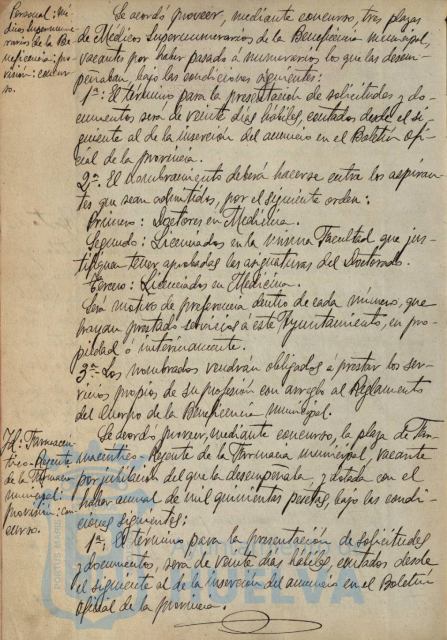 Personal: Mé-
dicos supernume-
rarios de la Be-
neficencia: pro-
visión: concur-
so.
Se acordó proveer, mediante concurso, tres plazas
de Médicos Supernumerarios de la Beneficencia municipal,
vacantes por haber pasado a numerarios los que las desem-
peñaban, bajo las condiciones siguientes:
1ª: El término para la presentación de solicitudes y do-
cumentos será de veinte días hábiles, contados desde el si-
guiente al de la inserción del anuncio en el Boletín ofi-
cial de la provincia.
2ª. El nombramiento deberá hacerse entre los aspiran-
tes que sean admitidos, por el siguiente orden:
Primero: Doctores en Medicina.
Segundo: Licenciados en la misma Facultad que jus-
tifiquen tener aprobadas las asignaturas del Doctorado.
Tercero: Licenciados en Medicina.
Será motivo de preferencia dentro de cada número, que
hayan prestado servicios a este Ayuntamiento, en pro-
piedad o interinamente.
3ª- Los nombrados vendrán obligados a prestar los ser-
vicios propios de su profesión con arreglo al Reglamento
del Cuerpo de la Beneficencia municipal.
Id: Farmacéu-
tico-Regente
de la Farmacia
municipal:
provisión: con-
curso.
Se acordó proveer, mediante concurso, la plaza de Far-
macéutico-Regente de la Farmacia municipal, vacante
por jubilación del que la desempeñaba, y dotada con el
haber anual de mil quinientas pesetas, bajo las condi-
ciones siguientes:
1ª: El término para la presentación de solicitudes
y documentos, será de veinte días hábiles, contados desde
el siguiente al de la inserción del anuncio en el Boletín
oficial de la provincia.
HUELVA